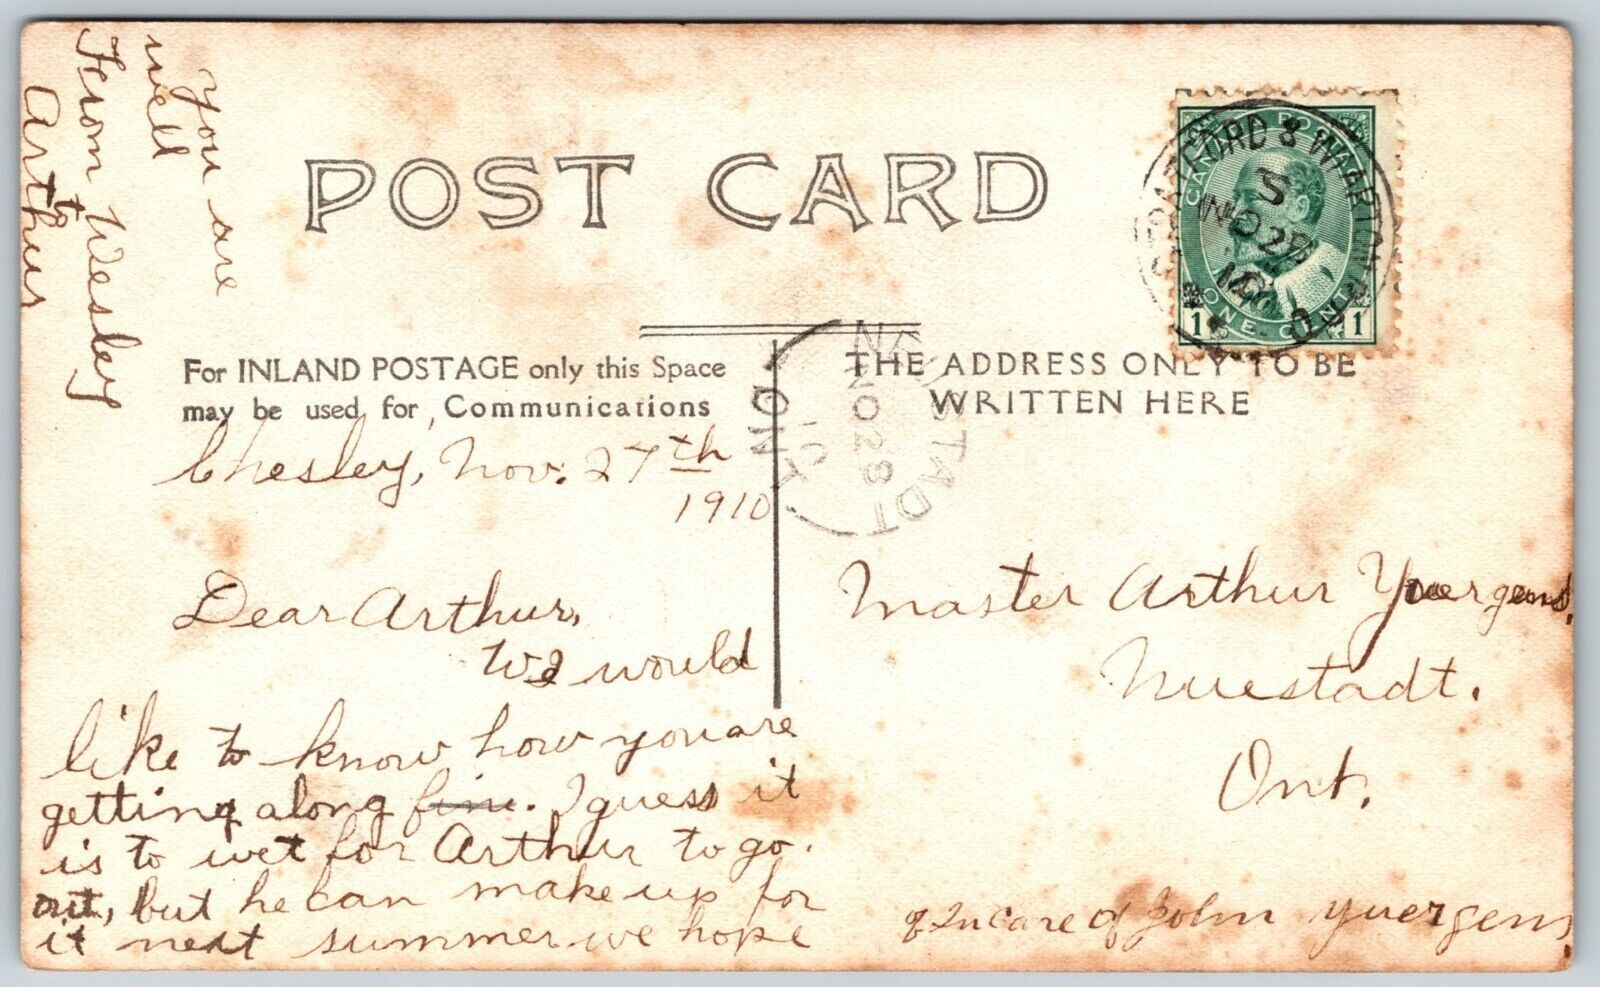 POST CARD
For INLAND POSTAGE only this Space
may be used for Communications
THE ADDRESS ONLY TO BE
WRITTEN HERE
CANADA POSTAGE
1 ONE CENT 1
STRATFORD & WIARTON R.P.O.
S
NO 28
NEUSTADT
NO 28
10
ONT
Chesley, Nov. 27th
1910
Dear Arthur,
We would
like to know how you are
getting along fine. I guess it
is to wet for Arthur to go.
out, but he can make up for
it next summer we hope
You are
well
From Wesley
to
Arthur
Master Arthur Yuergens,
Nuestadt.
Ont.
In care of John Yuergens,